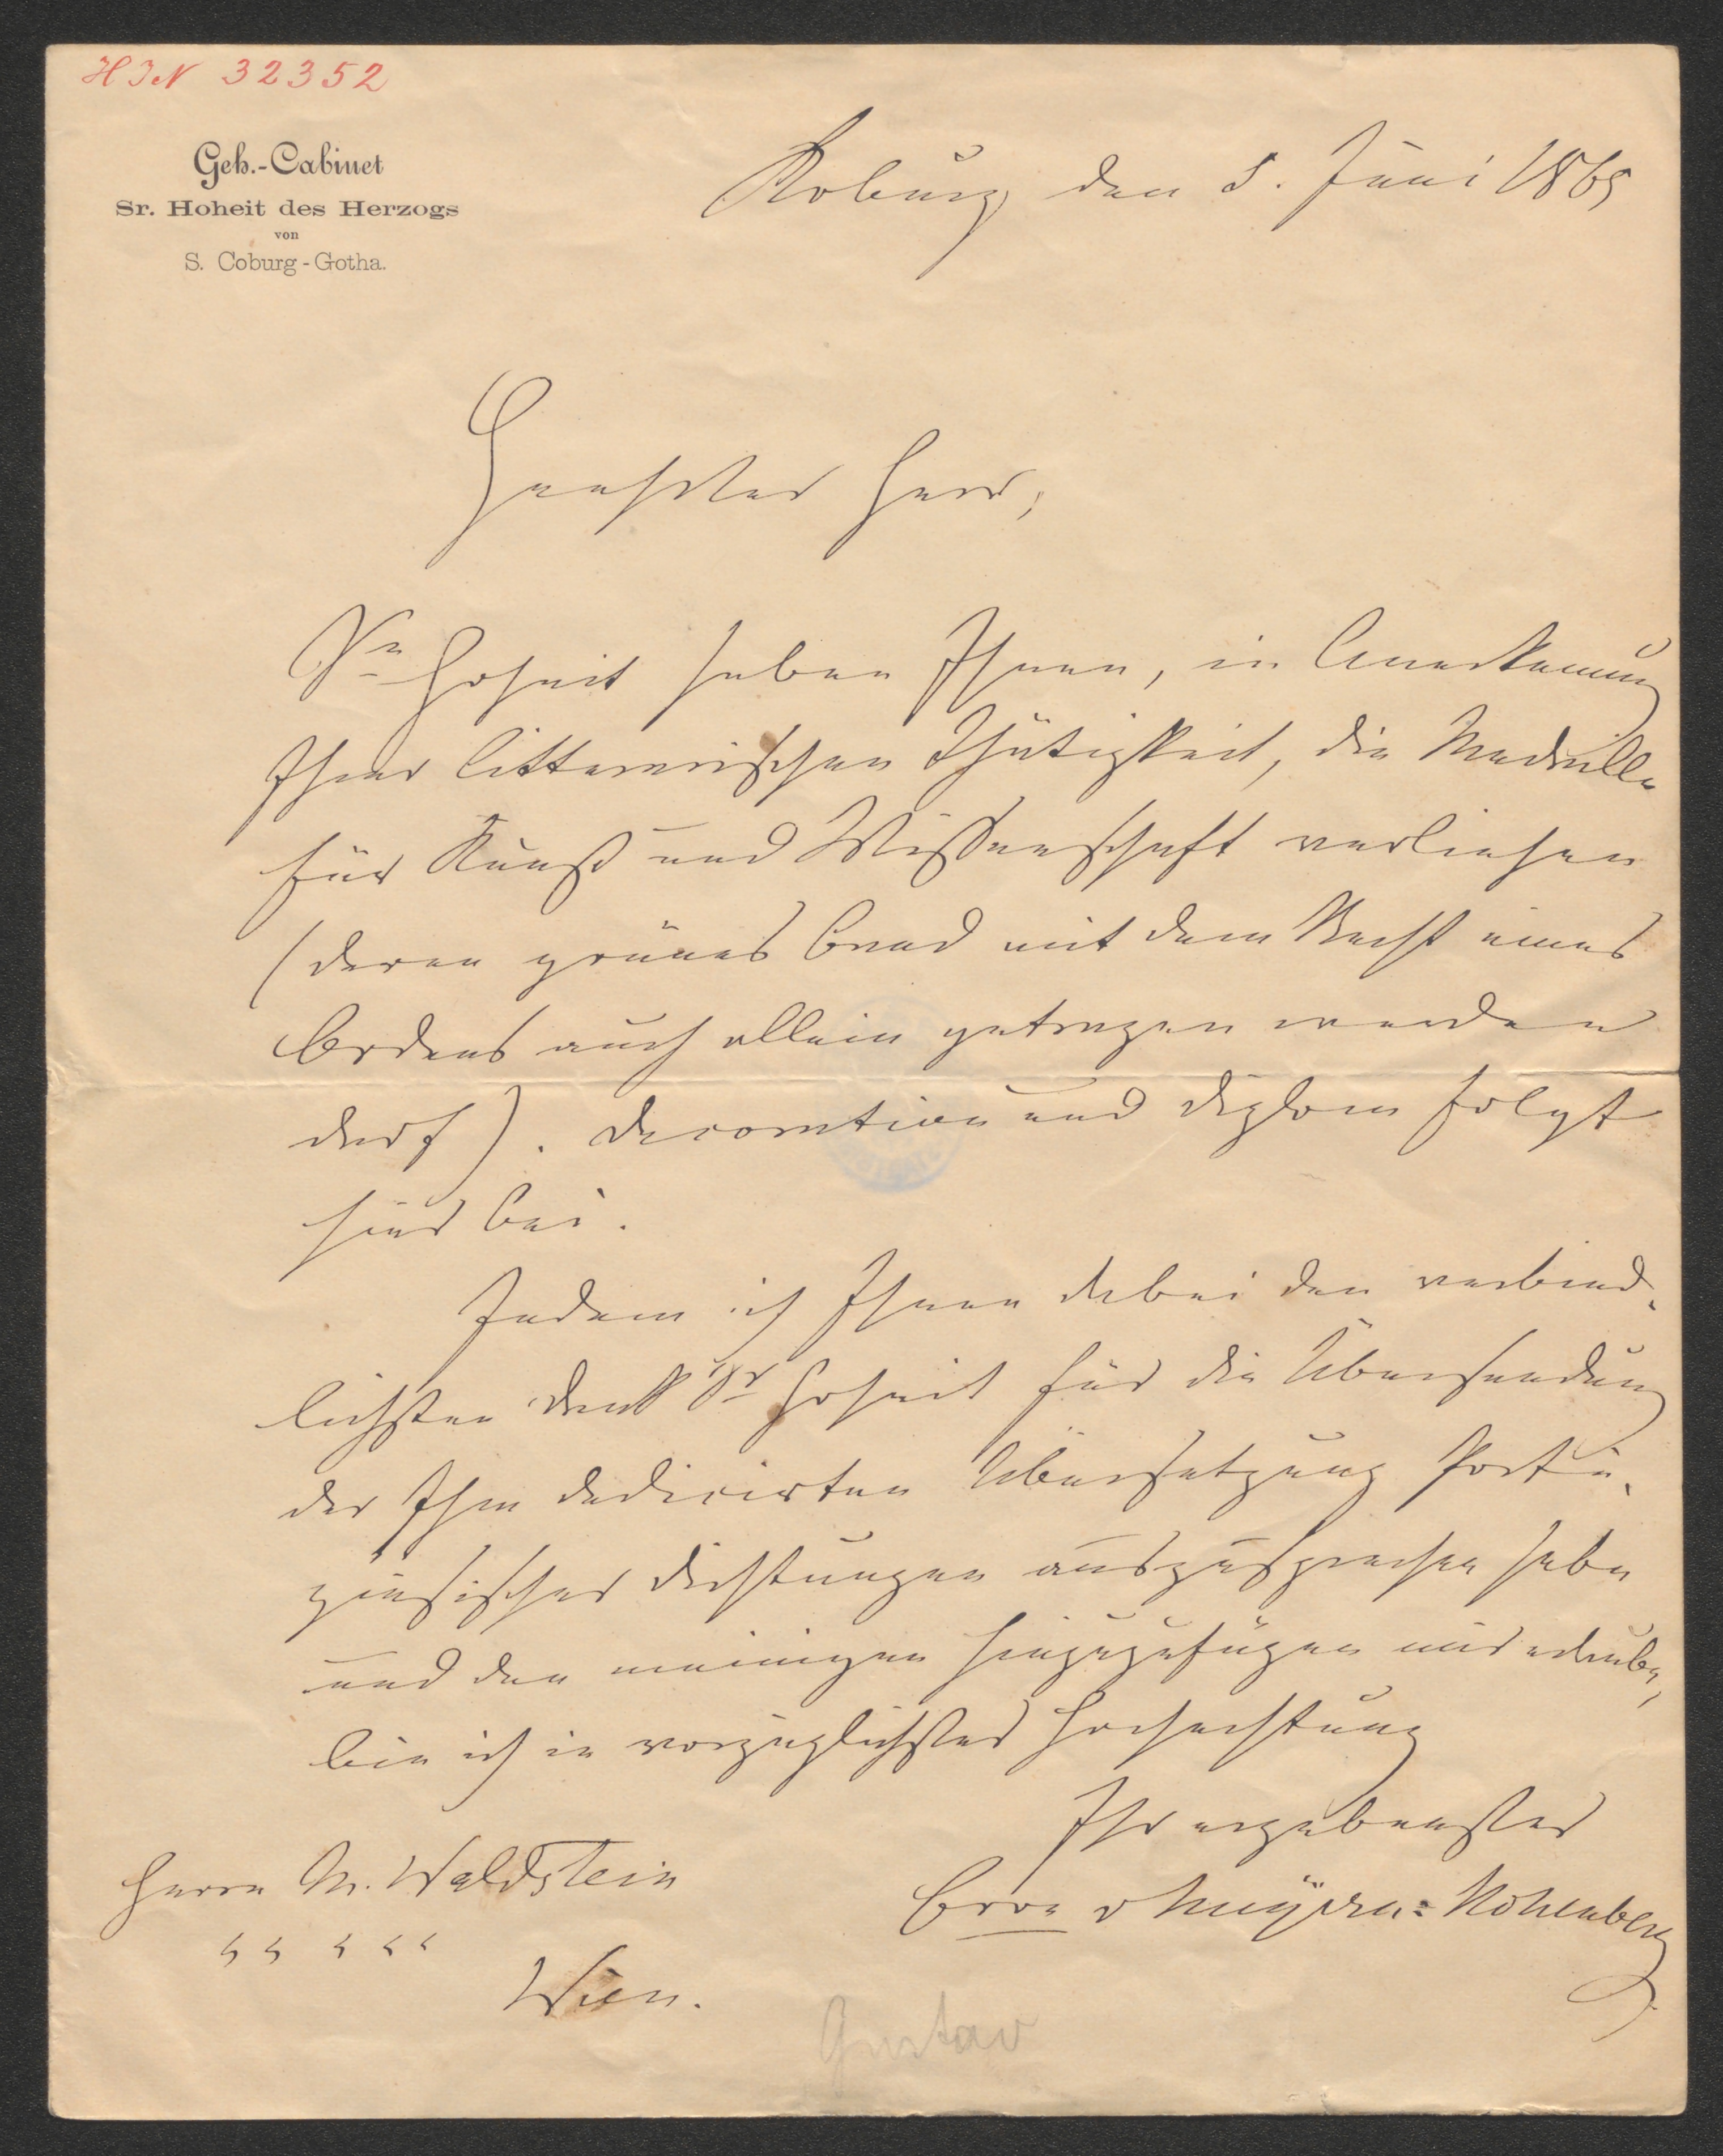 HIN 32352
Geh.-Cabinet
Sr. Hoheit des Herzogs
von
S. Coburg-Gotha.
Koburg den 5. Juni 1865
Geehrter Herr,
Se Hoheit haben Ihnen, in Anerkennung
Ihrer litterarischen Thätigkeit, die Medaille
für Kunst und Wissenschaft verliehen
(deren grünes Band mit dem Recht eines
Ordens auch allein getragen werden
darf). Decoration und Diplom folgt
hier bei.
Indem ich Ihnen dabei den verbind-
lichsten Dank Sr Hoheit für die Übersendung
der Ihm dedicirten Übersetzung Portu-
giesischer Dichtungen auszusprechen habe
und den meinigen hinzuzufügen mir erlaube,
bin ich in vorzüglichster Hochachtung
Ihr ergebenster
v Meyern-Hohenberg
Herrn M. Waldstein
Wien.
Gustav